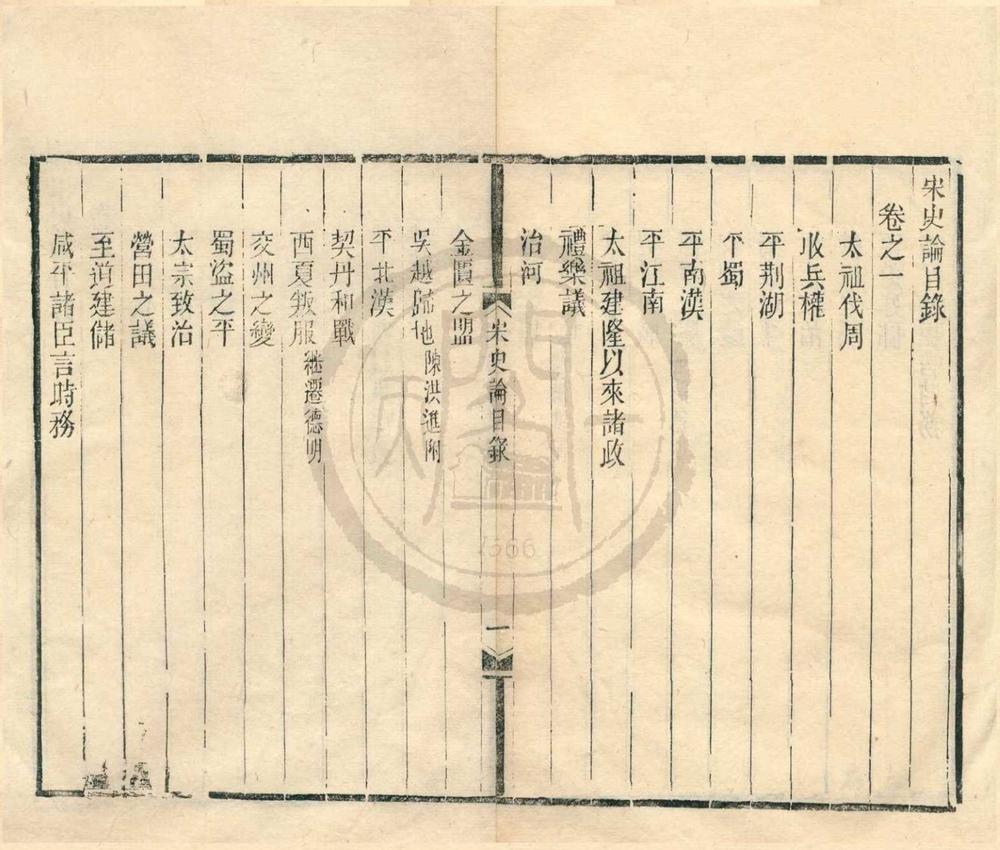 宋史論目錄
卷之一
太祖伐周
收兵權
平荆湖
平蜀
平南漢
平江南
太祖建隆以來諸政
禮樂議
治河
宋史論目錄
一
金匱之盟
吳越歸地陳洪進附
平北漢
契丹和戰
西夏叛服繼遷德明
交州之變
蜀盜之平
太宗致治
營田之議
至道建儲
咸平諸臣言時務
1566